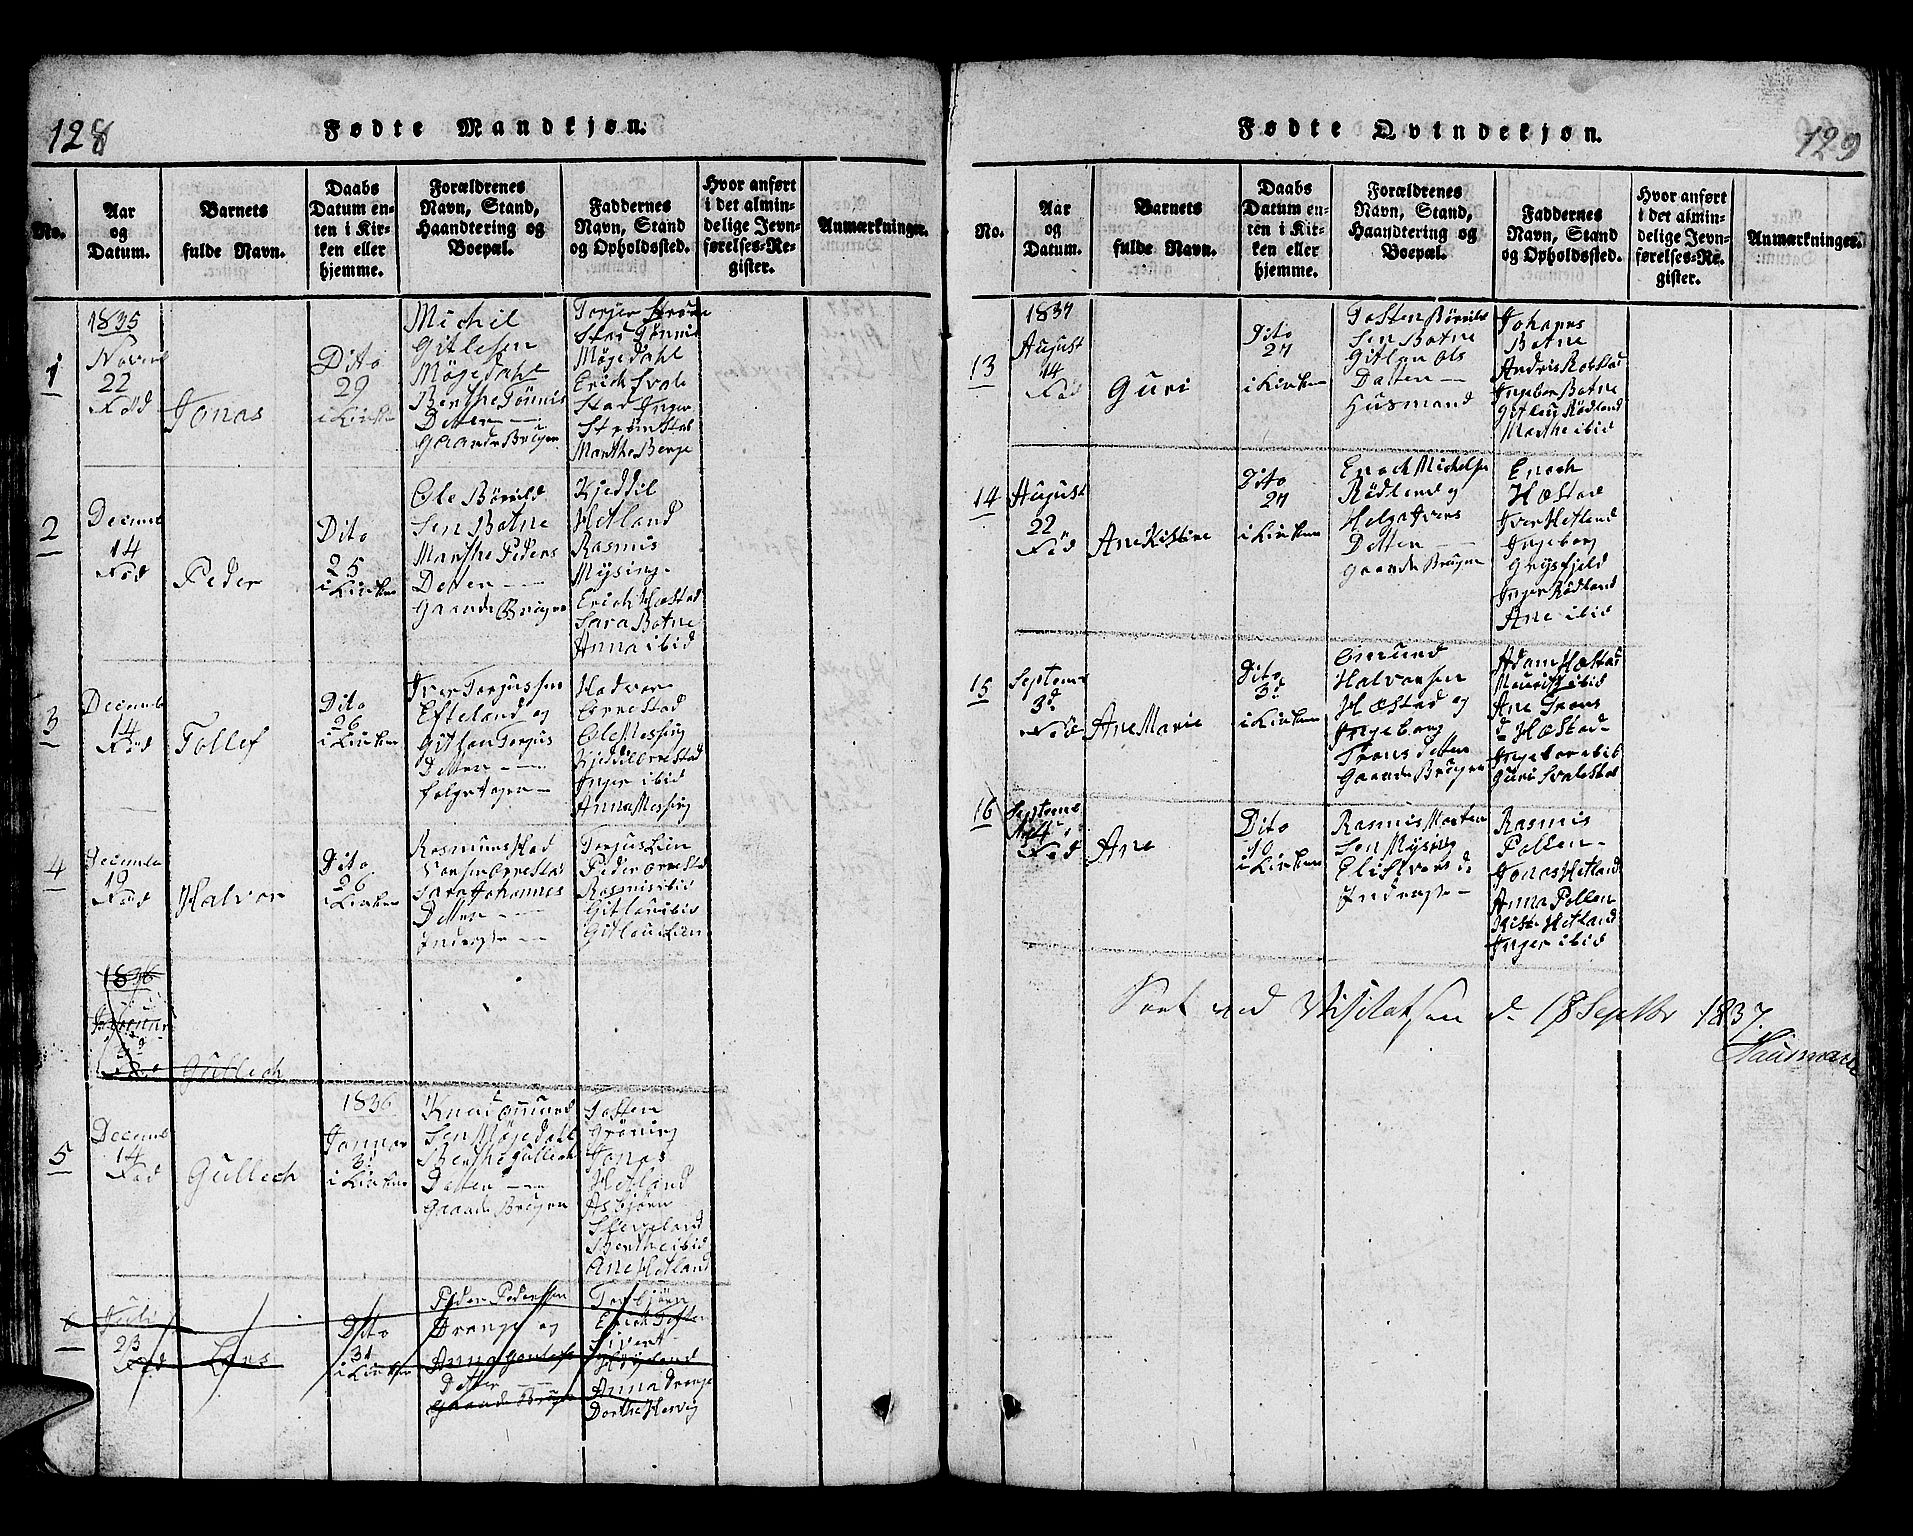 128
Fødte Mandkjøn.
No.
Aar
og
Datum.
Barnets
fulde Navn.
Daabs
Datum en-
ten i Kir-
ken eller
hjemme.
Forældrenes
Navn, Stand,
Haandtering og
Boepæl.
Faddernes
Navn, Stand
og Opholdssted.
Hvor anført
i det almin-
delige Jevn-
førelses-Re-
gister.
Anmærkninger.
1
1835
Novem
22
Fød
Jonas
Dito
29
i Kirken
Michil
Gitlesen
Møgedahl
Berthe Tønnis
Datter
Gaards Brúger
Torjer Strøm
Stad Tønnis
Møgedahl
Erich Svale
Stad Inger
Strømstad
Marthe Berge
2
Decemb
14
Fød
Peder
Dito
25
i Kirken
Ole Børild
Sen Botne
Marthe Peders
Datter
Gaards Brúger
Kjeddil
Hetland
Rasmis
Mysing
Erich Hæstad
Sara Botne
Anna ibid
3
Decemb
14
Fød
Tollef
Dito
26
i Kirken
Iver Torjussen
Efteland og
Githan Torjus
Datter
Halvor
Orrestad
Ole Messing
Kjeddil Orrestad
Inger ibid
Anna Messing
4
Decemb
19
Fød
Halvor
Dito
26
i Kirken
Sara Johannes
Datter
Inderste
Torjus Lien
Peder Orrestad
Rasmis ibid
Gitlau ibid
Gitlau Lien
1836
Janúar
Fød
Gúllech
5
Decemb
14
Fød
Gúllech
1836
Janúar
3d
i Kirken
Knud Omund
Sen Møgedahl
Berthe Gúllech
Datter
Gaards Brúger
Tosten
Grøning
Jonas
Hetland
Asbjørn
Sleveland
Berthe ibid
Ane Hetland
6
Júli
23
Fød
Lars
Dito
31
i Kirken
Peder Pedersen
Drange og
Anna
Datter
Gaards Brúger
Torbjørn
Sivert
Anna Drange
Dorthe Hervig
129
Fødte Qvindekjøn.
No.
Aar
og
Datum.
Barnets
fulde Navn.
Daabs
Datum en-
ten i Kir-
ken eller
hjemme.
Forældrenes
Navn, Stand,
Haandtering og
Boepæl.
Faddernes
Navn, Stand
og Opholdssted.
Hvor anført
i det almin-
delige Jevn-
førelses-Re-
gister.
Anmærkninger.
13
1837
August
14
Fød
Guri
Dito
27
i Kirken
Tosten Børild
Sen Botne
Gitlau Ols
Datter
Husmand
Johans
Botne
Andris Robstad
Ingebor Botne
Gitlau Rødland
Marthe ibid
14
August
22
Fød
Ane Kistine
Dito
27
i Kirken
Enoch Michels
Rødland og
Helga Ivers
Datter
Gaards Brúger
Enoch
Hæstad
Iver Hetland
Ingeborg
Grysfjeld
Inger Rødland
Ane ibid
15
Septemb
3d
Fød
Ane Marie
Dito
3d
i Kirken
Omund
Halvorsen
Hæstad og
Ingeborg
Trons Datter
Gaards Brúger
Adam Hæstad
Mauris ibid
Ane Trons
d Hæstad
Ingebor ibid
Guri Svalestad
16
Septemb
Fød
Ane
Dito
10
i Kirken
Rasmis Morten
Sen Mysing
Inderste
Rasmis
Pollen
Jonas Hetland
Anna Pollen
Kisti Hetland
Inger ibid
Seet ved Visitatsen d. 18 Septbr 1837.